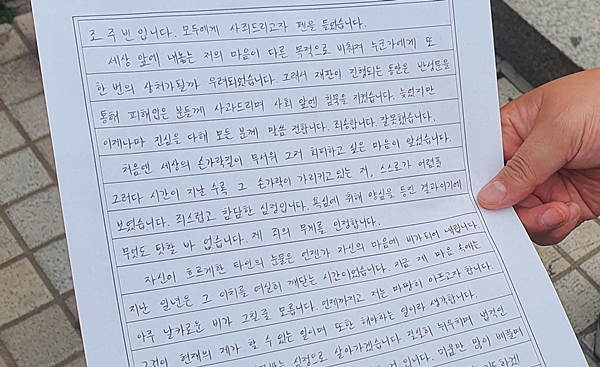 조주빈입니다. 모두에게 사죄드리고자 펜을 들었습니다.
세상 앞에 내놓는 저의 마음이 다른 목적으로 비춰져 누군가에게 또
한 번의 상처가될까 우려되었습니다. 그래서 재판이 진행되는 동안은 반성문을
통해 피해입은 분들께 사과드리며 사회 앞엔 침묵을 지켰습니다. 늦었지만
이제나마 진심을 다해 모든 분께 말씀 전합니다. 죄송합니다. 잘못했습니다.
처음엔 세상의 손가락질이 무서워 그저 회피하고 싶은 마음이 앞섰습니다.
그러다 시간이 지날 수록 그 손가락이 가리키고 있는 저, 스스로가 어렴풋
보였습니다. 죄스럽고 참담한 심정입니다. 욕심에 취해 양심을 등진 결과이기에
무엇도 탓할 바 없습니다. 제 죄의 무게를 인정합니다.
자신이 흐르게한 타인의 눈물은 언젠가 자신의 마음에 비가되어 내립니다.
지난 일년은 그 이치를 여실히 깨닫는 시간이었습니다. 지금 제 마음 속에는
아주 날카로운 비가 그칠줄 모릅니다. 언제까지고 저는 마땅히 아프고자 합니다.
그것이 현재의 제가 할 수 있는 일이며 또한 해야하는 일이라 생각합니다.
심정으로 살아가겠습니다. 절실히 뉘우치며 법적인
것 입니다. 미움만 많이 베풀며